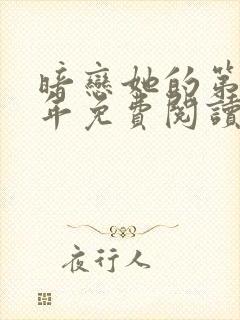 暗戀她的第
年免費閱讀
夜行人